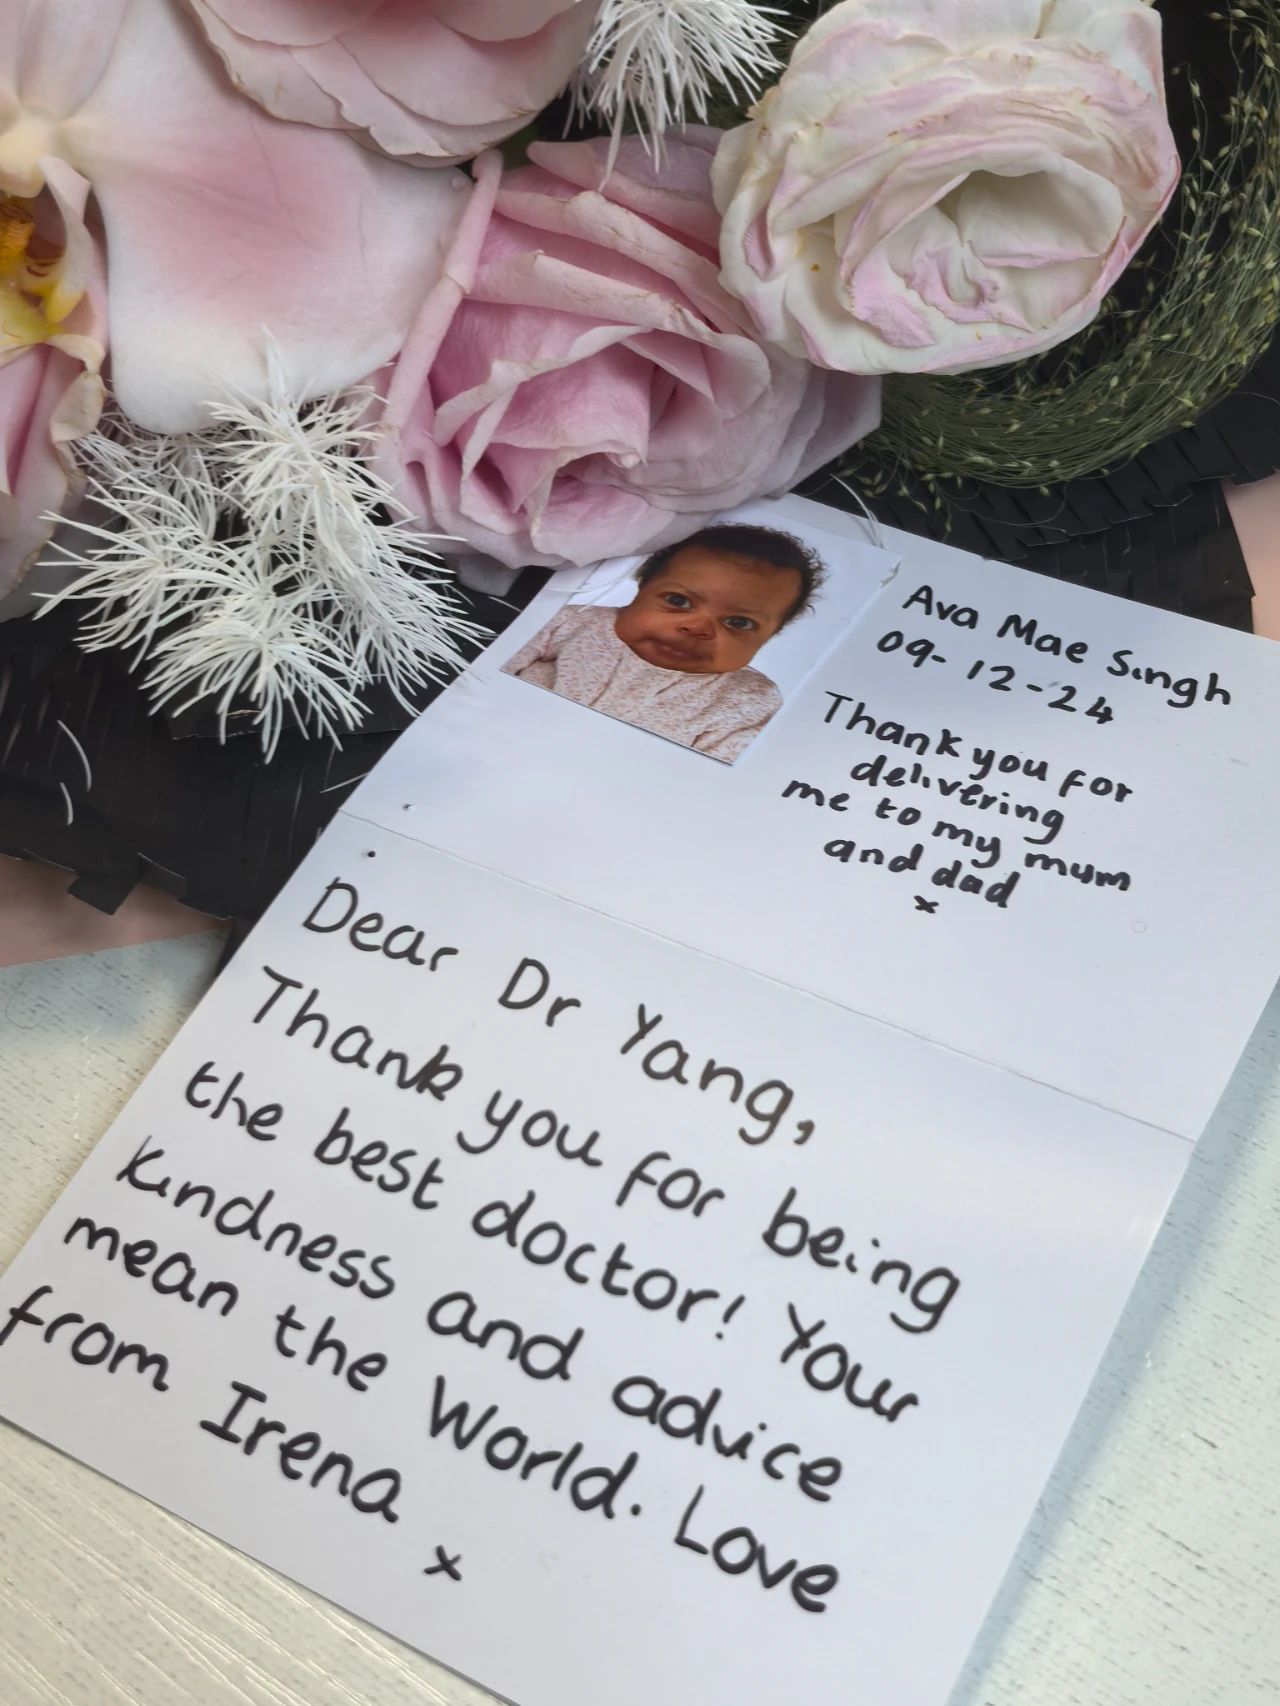 Ava Mae Singh
09-12-24
Thank you for
delivering
me to my mum
and dad
x
Dear Dr Yang,
Thank you for being
the best doctor! Your
kindness and advice
mean the World. Love
from Irena
x